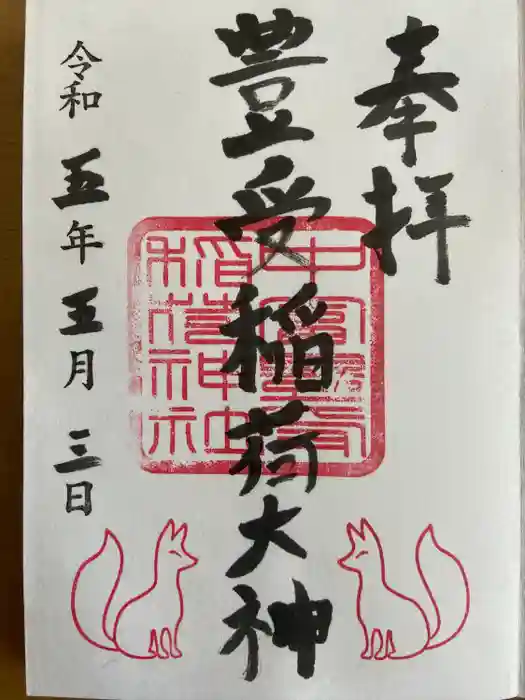 奉拝
豊受稲荷大神
令和五年五月三日
稲荷神社